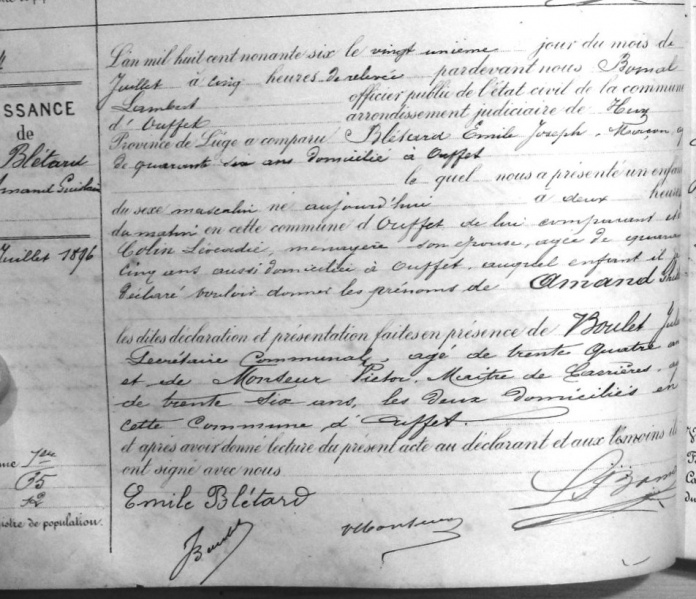 SSANCE
de
Blétard
Juillet 1896
me 1re
65
12
istre de population.
L'an mil huit cent nonante six le vingt unième jour du mois de
Juillet à cinq heures de relevée pardevant nous Bomal
Lambert officier public de l'état civil de la commune
d'Ouffet arrondissement judiciaire de Huy
Province de Liége a comparu Blétard Emile Joseph, Maçon,
de quarante six ans domicilié à Ouffet
le quel nous a présenté un enfant
du sexe masculin né aujourd'hui à deux heures
du matin en cette commune d'Ouffet de lui comparant et
Colin Léocadie, menagère son epouse, agée de quaran
cinq ans aussi domiciliée à Ouffet, auquel enfant il
déclaré vouloir donner les prénoms de Amand
les dites déclaration et présentation faites en présence de Boulet Jules
Secrétaire Communal, agé de trente quatre an
et de Monseur Victor, Maître de Carrières,
de trente six ans, les deux domiciliés en
cette Commune d'Ouffet.
et après avoir donné lecture du présent acte au déclarant et aux témoins
ont signé avec nous
Emile Blétard